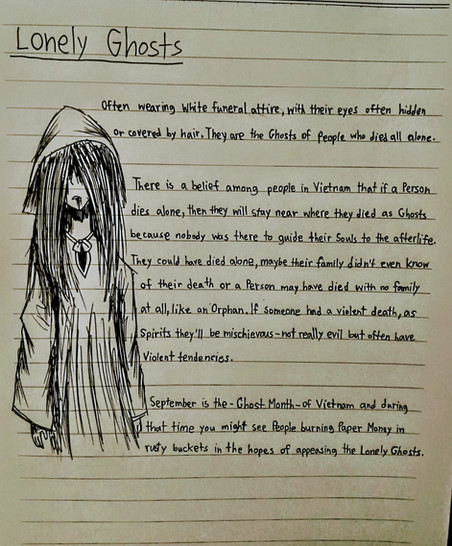 Lonely Ghosts
Often wearing white funeral attire, with their eyes often hidden
or covered by hair. They are the Ghosts of people who died all alone.
There is a belief among people in Vietnam that if a Person
dies alone, then they will stay near where they died as Ghosts
because nobody was there to guide their Souls to the afterlife.
They could have died alone, maybe their family didn't even know
of their death or a Person may have died with no family
at all, like an Orphan. If someone had a violent death, as
Spirits they'll be mischievous-not really evil but often have
Violent tendencies.
September is the-Ghost Month-of Vietnam and during
that time you might see People burning Paper Money in
rusty buckets in the hopes of appeasing the Lonely Ghosts.